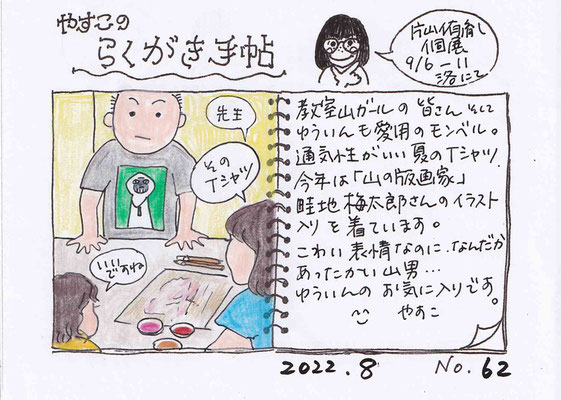 やすこの
らくがき手帖
個展
9/6-11
洛にて
先生
その
Tシャツ
いい
ですね
教室山ガールの皆さんそして
ゆういんも愛用のモンベル。
通気性がいい夏のTシャツ
今年は「山の版画家」
畦地梅太郎さんのイラスト
入りを着ています。
こわい表情なのに、なんだか
あったかい山男…
ゆういんのお気に入りです。
やすこ
2022.8
No.62